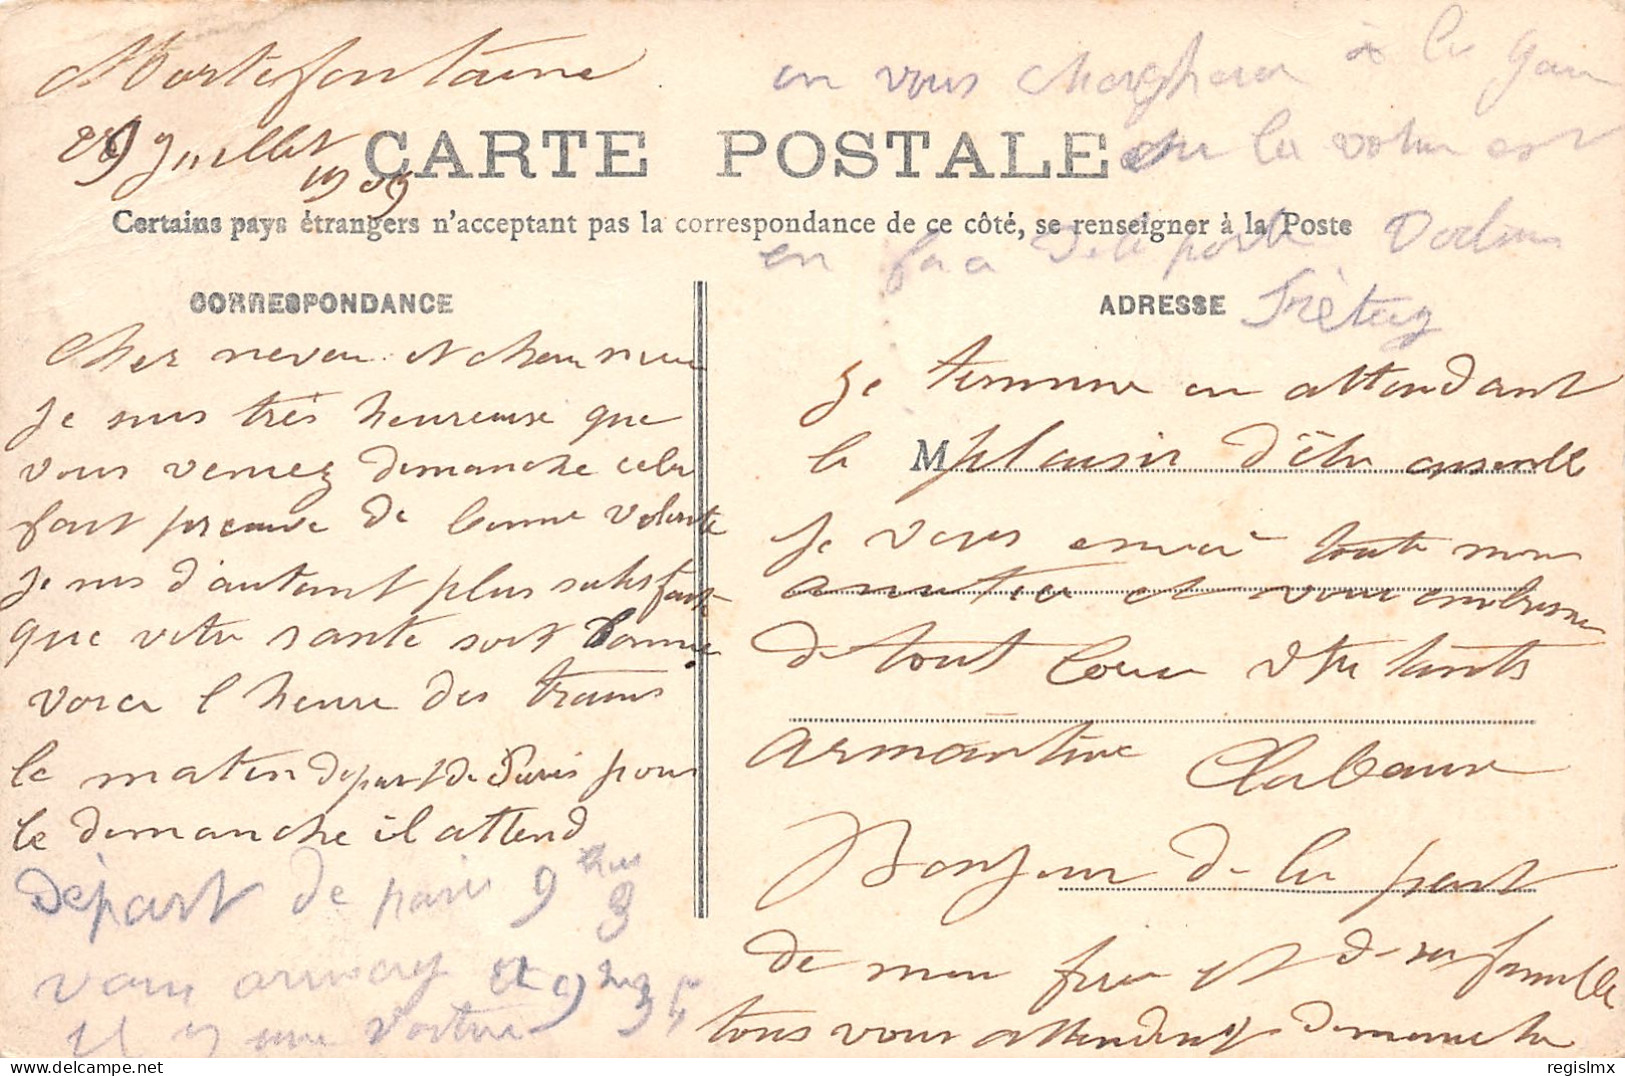 Mortefontaine
29 Juillet
1909
CARTE POSTALE
Certains pays étrangers n'acceptant pas la correspondance de ce côté, se renseigner à la Poste
CORRESPONDANCE
Cher neveu et chere niece
Je suis très heureuse que
vous veniez dimanche cela
fait preuve de bonne volonte
Je suis d'autant plus satisfaite
que votre santé soit bonne
voici l heure des trains
le matin depart de Paris pour
le dimanche il attend
Départ de paris 9 hres 3
vous arrivez et 9 h 34
il y une voiture
en vous chargera à la gare
ou la voiture est
en face de la porte
ADRESSE
Je termine en attendant
le M plaisir d'être ensemble
Je vous envoie toute mon
amitié et vous embrasse
de tout coeur votre tante
armantine Clabaux
Bonjour de la part
de mon frère et de sa famille
tous vous attendent dimanche
regislmx